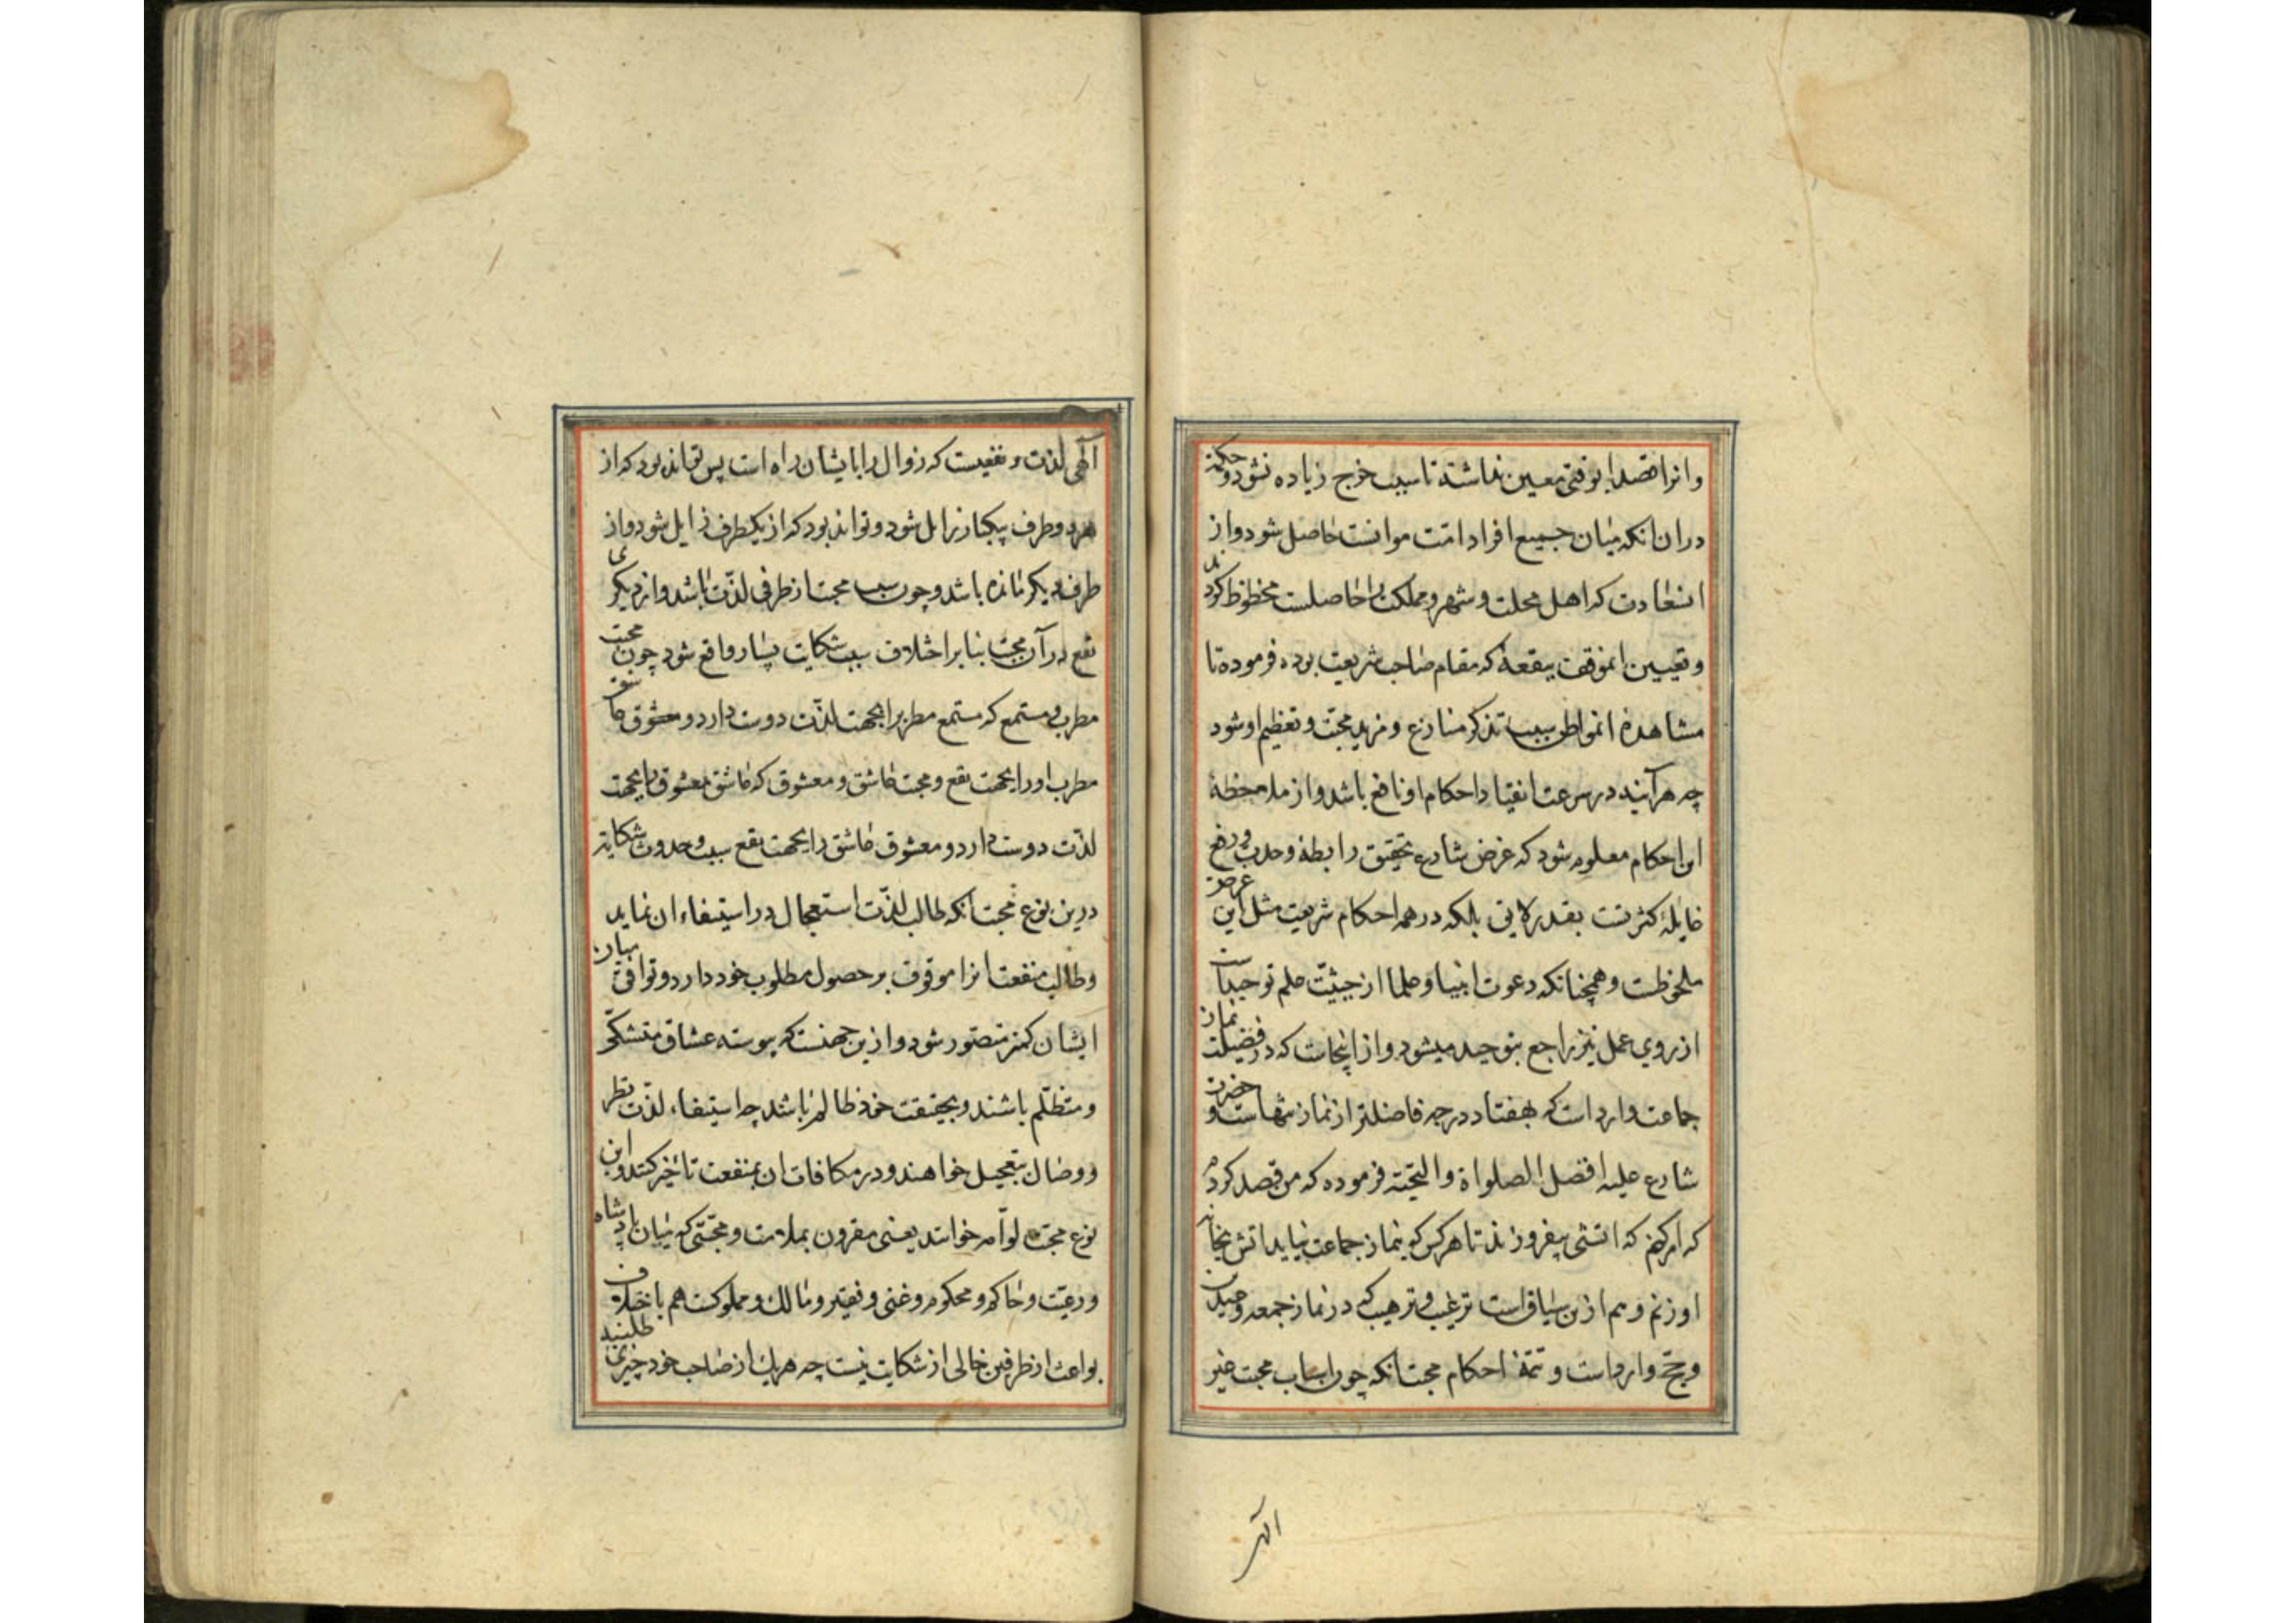 وانرا مقصدا بوقتی معین نداشته تا سبب خرج زیاده نشود و حکمة
در ان انکه میان جمیع افراد امت موانست حاصل شود و از
انسعادت که اهل محلت و شهر و مملکت را حاصلست محظوظ کردند
و تعیین انموقف ببقعهٔ که مقام صاحب شریعت بوده فرموده تا
مشاهدهٔ انمواطن سبب تذکر منازع و مزید محبت و تعظیم او شود
چه هرآینه در سرعت انقیاد احکام او نافع باشد و از ملاحظهٔ
این احکام معلوم شود که غرض شارع تحقیق رابطهٔ وحدت و رفع
غایلهٔ کثرتست بقدر لایق بلکه در همه احکام شریعت مثل این غرض
ملحوظست و همچنانکه دعوت انبیا و علما از حیثیّت علم توحید است
از روی عمل نیز راجع بتوحید میشود و از اینجاست که در فضیلت نماز
جماعت وارد است که بهفتاد درجه فاضلتر از نماز تنهاست و حضرت
شارع علیه افضل الصلواة والتحیّة فرموده که من قصد کردم
که امر کنم که اتشی بیفروزند تا هرکس که بنماز جماعت نیاید اتش بخانه
او زنم و هم ازین سیاق است ترغیب و ترهیب که در نماز جمعه و عیدین
و حجّ وارد است و تتمهٔ احکام محبت انکه چون اسباب محبت غیر
الهی
الهی لذت و نفعیست که زوال را بایشان راه است پس تواند بود که از
هر دو طرف بیکبار زایل شود و تواند بود که از یکطرف زایل شود و از
طرف دیگر مانده باشد و چون سبب محبت از طرفی لذّت باشد و از دیگری
نفع در آن محبّت بنا بر اختلاف سبب شکایت بسیار واقع شود چون محبت
مطرب و مستمع که مستمع مطربرا بجهت لذّت دوست دارد و
مطرب او را بجهت نفع و محبت عاشق و معشوق که عاشق معشوق را بجهت
لذّت دوست دارد و معشوق عاشق را بجهت نفع سبب و حدوث شکایة
درین نوع محبت انکه طالب لذّت استعجال در استیفاء ان نماید
و طالب منفعت انرا موقوف بر حصول مطلوب خود دارد و توافق میان
ایشان کمتر متصّور شود و ازین جهتست که پیوسته عشاق متشکّی
و متظلّم باشند و بحقیقت خود ظالم باشد چه استیفاء لذّت نظر
و وصال بتعجیل خواهند و در مکافات ان بمنفعت تاخیر کنند و این
نوع محبّت لوّامه خوانند یعنی مقرون بملامت و محبّتی که میان پادشاه
و رعیّت و حاکم و محکوم و غنی و فقیر و مالک و مملوکست هم باختلاف
بواعث از طرفین خالی از شکایت نیست چه هریک از صاحب خود چیزی طلبید